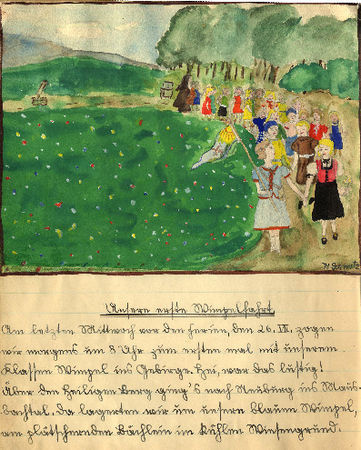 Unsere erste Wimpelfahrt
Am letzten Mittwoch vor den Ferien, den 26. IX. zogen
wir morgens um 8 Uhr zum ersten mal mit unserem
Klassen Wimpel ins Gebirge. Hei, war das lustig!
Über den Heiligenberg ging's nach Neuburg ins Maus-
bachtal. Da lagerten wir um unsern blauen Wimpel
am plätschernden Bächlein im kühlen Wiesengrund.